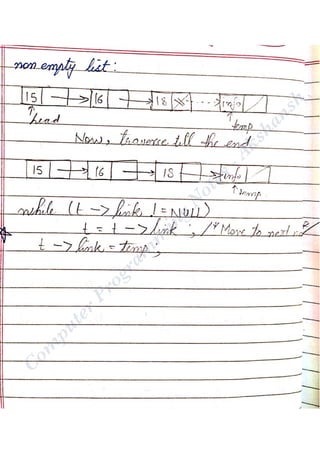 non empty list :
15 → 16 → 18 → info
head
temp
Now, traverse till the end
15 → 16 → 18 → info
temp
while (t -> link != NULL)
t = t -> link ; /* Move to next
t -> link = temp ;
Computer